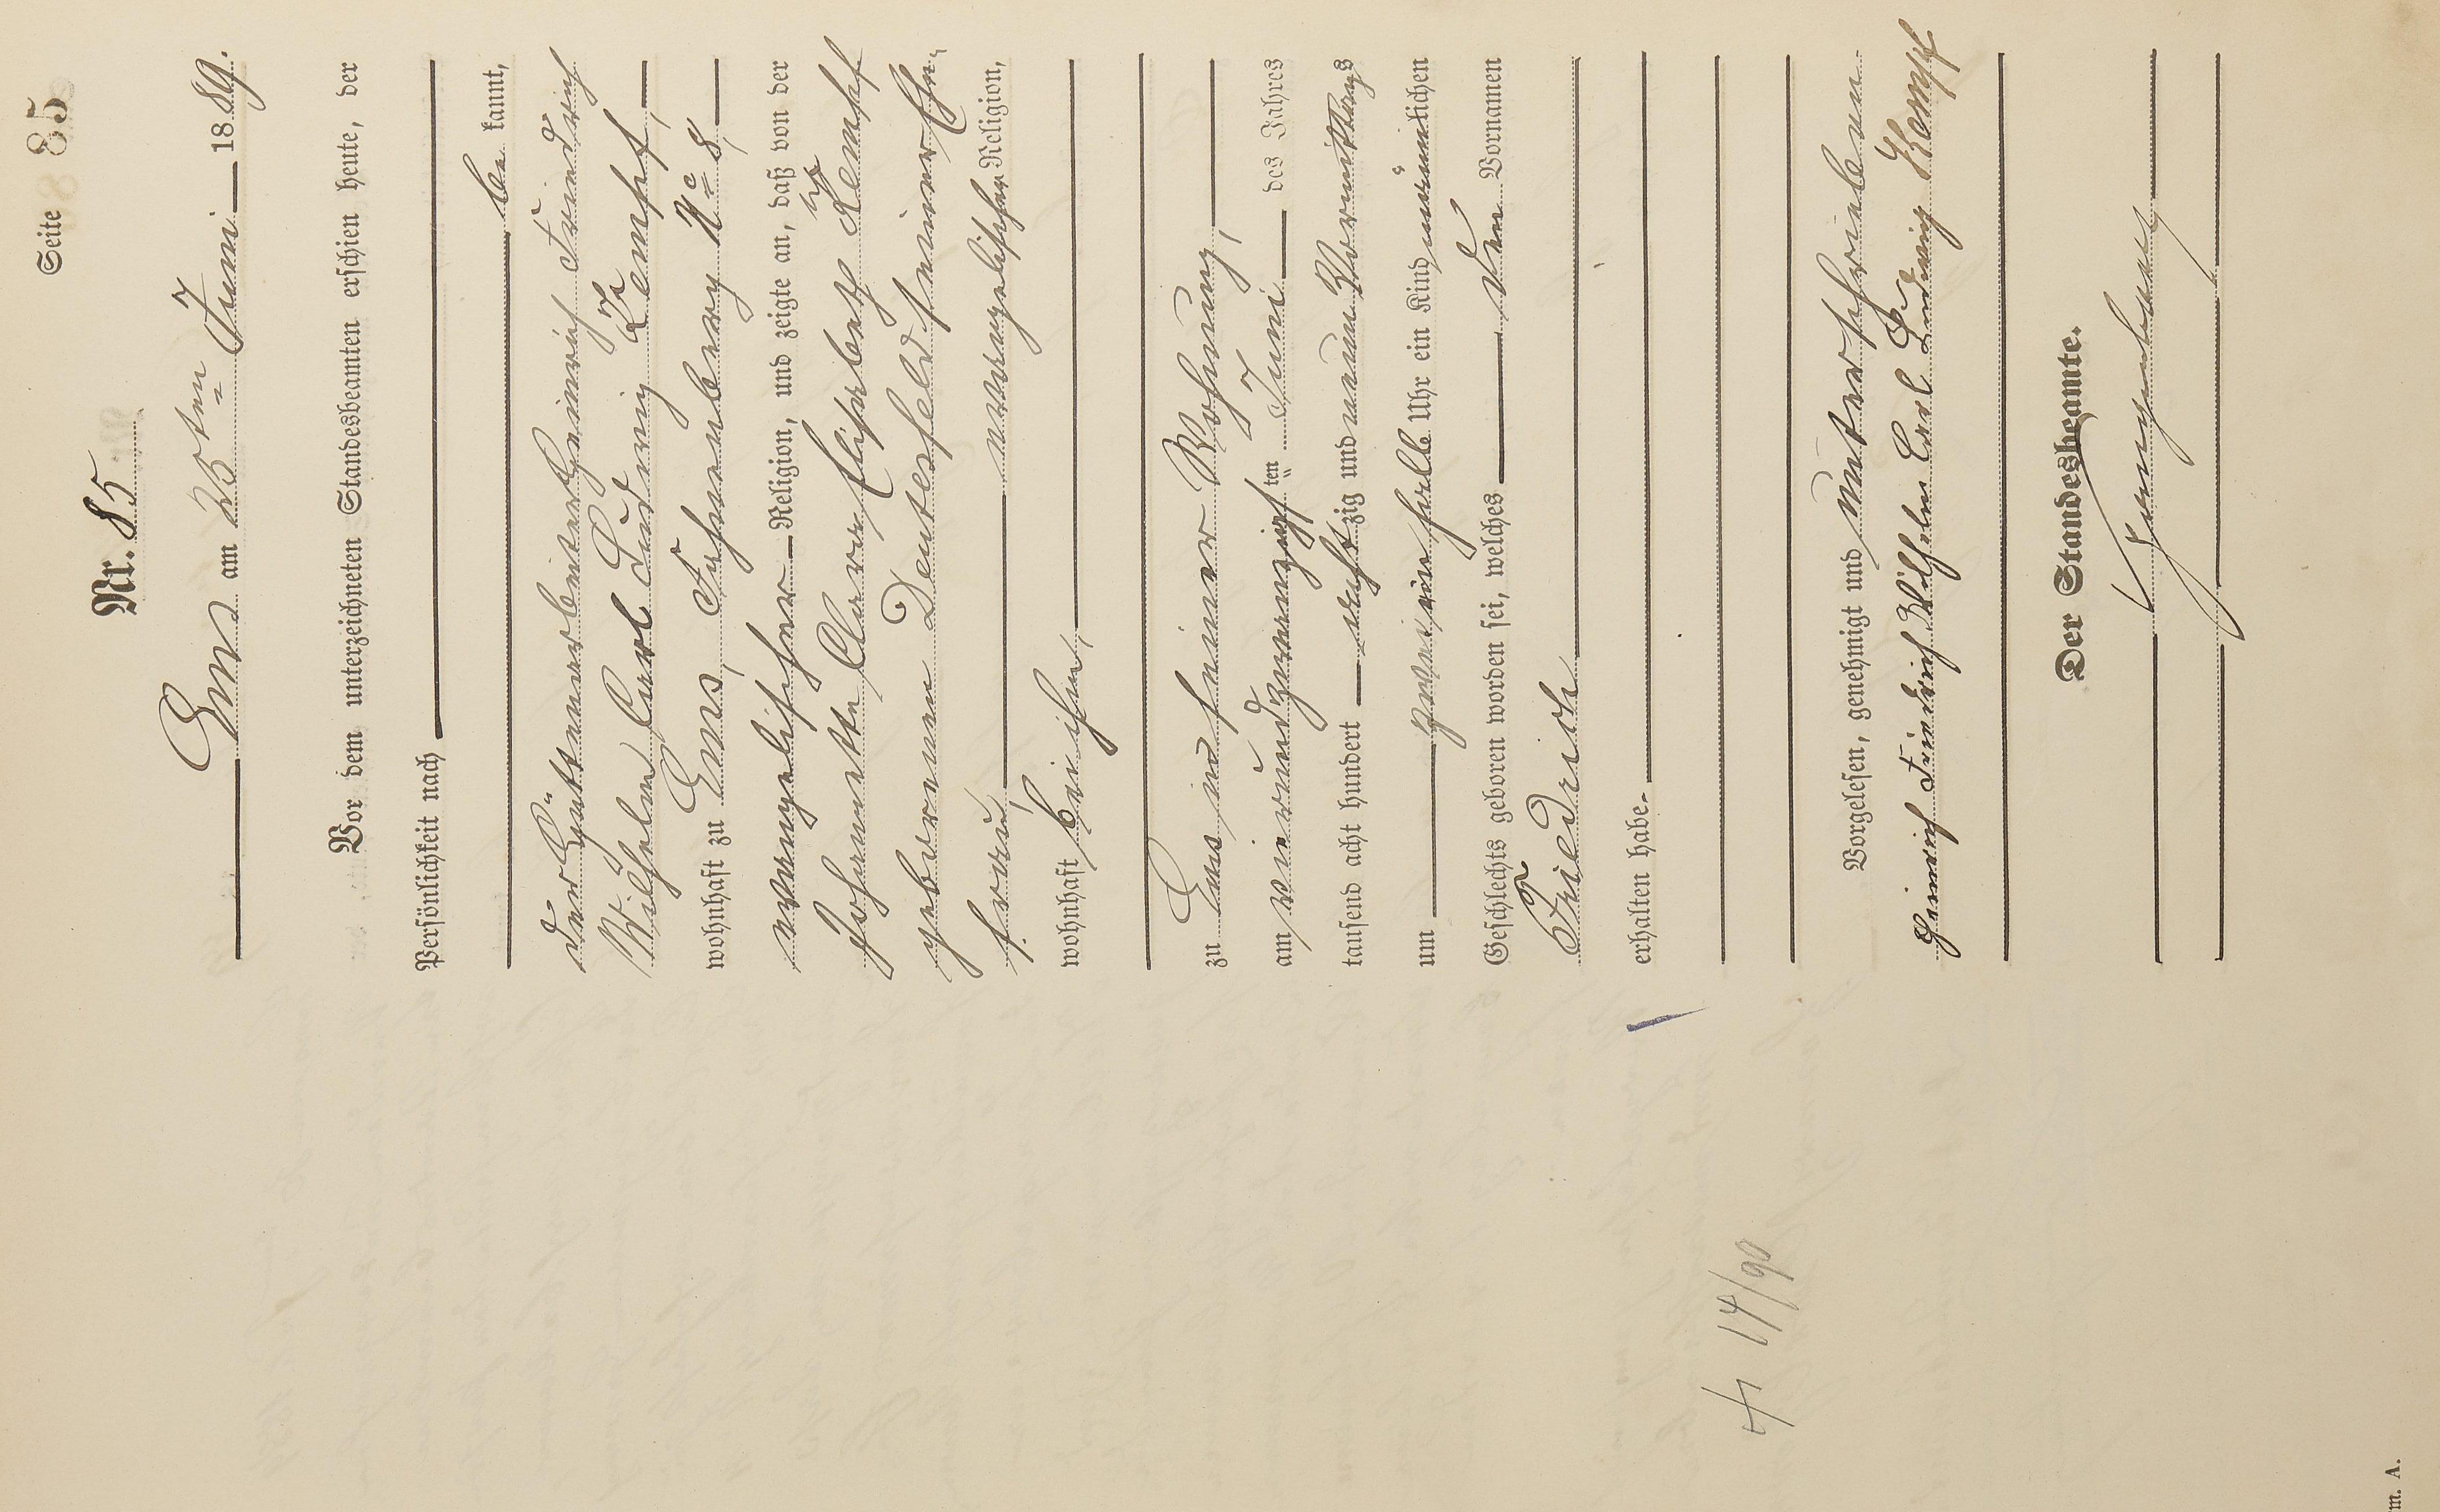 Seite 85
Nr. 85
Ems am 25ten Juni 1889.
Vor dem unterzeichneten Standesbeamten erschien heute, der
Persönlichkeit nach
be kannt,
der Hüttenarbeiter Heinrich Friedrich
Wilhelm Carl Ludwig Kempf,
wohnhaft zu Ems, Fahnenberg No 8,
evangelischer Religion, und zeigte an, daß von der
Johannette Clara Elisabeth Kempf
geborenen Deutesfeld seiner Ehe-
frau, evangelischer Religion,
wohnhaft bei ihm,
zu Ems in seiner Wohnung,
am vierundzwanzigsten Juni des Jahres
tausend acht hundert achtzig und neun Vormittags
um zwei ein halb Uhr ein Kind männlichen
Geschlechts geboren worden sei, welches den Vornamen
Friedrich
erhalten habe.
Vorgelesen, genehmigt und unterschrieben
Heinrich Friedrich Wilhelm Carl Ludwig Kempf
Der Standesbeamte.
14/90
m. A.